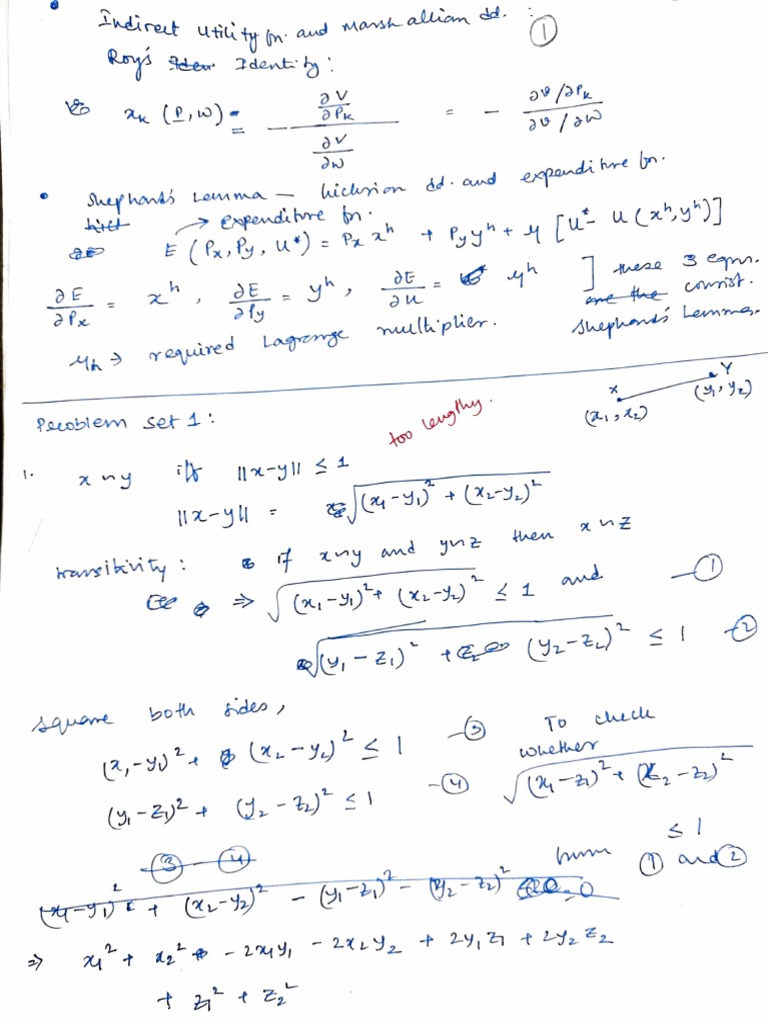 • Indirect utility fn. and marshallian dd. : ①
Roy's Identity :
x_k (P, w) = - (∂V/∂P_k) / (∂V/∂w) = - (∂v/∂P_k) / (∂v/∂w)
• Shephard's Lemma – hicksian dd. and expenditure fn.
→ expenditure fn.
E (Px, Py, U*) = Px x^h + Py y^h + η [U* - U (x^h, y^h)]
∂E/∂Px = x^h , ∂E/∂Py = y^h , ∂E/∂u = η^h ] these 3 eqn. consist. Shephard's Lemma.
η_h → required Lagrange multiplier.
Problem set 1 :
too lengthy.
X (x₁, x₂) Y (y₁, y₂)
1. x n y iff ||x-y|| ≤ 1
||x-y|| = √((x₁-y₁)² + (x₂-y₂)²)
transitivity : if x n y and y n z then x n z
⇒ √((x₁-y₁)² + (x₂-y₂)²) ≤ 1 and —①
√((y₁-z₁)² + (y₂-z₂)²) ≤ 1 —②
square both sides,
(x₁-y₁)² + (x₂-y₂)² ≤ 1 —③
(y₁-z₁)² + (y₂-z₂)² ≤ 1 —④
To check
whether
√((x₁-z₁)² + (x₂-z₂)²)
≤ 1
from ① and ②
③ - ④
(x₁-y₁)² + (x₂-y₂)² - (y₁-z₁)² - (y₂-z₂)²
⇒ x₁² + x₂² - 2x₁y₁ - 2x₂y₂ + 2y₁z₁ + 2y₂z₂
+ z₁² + z₂²